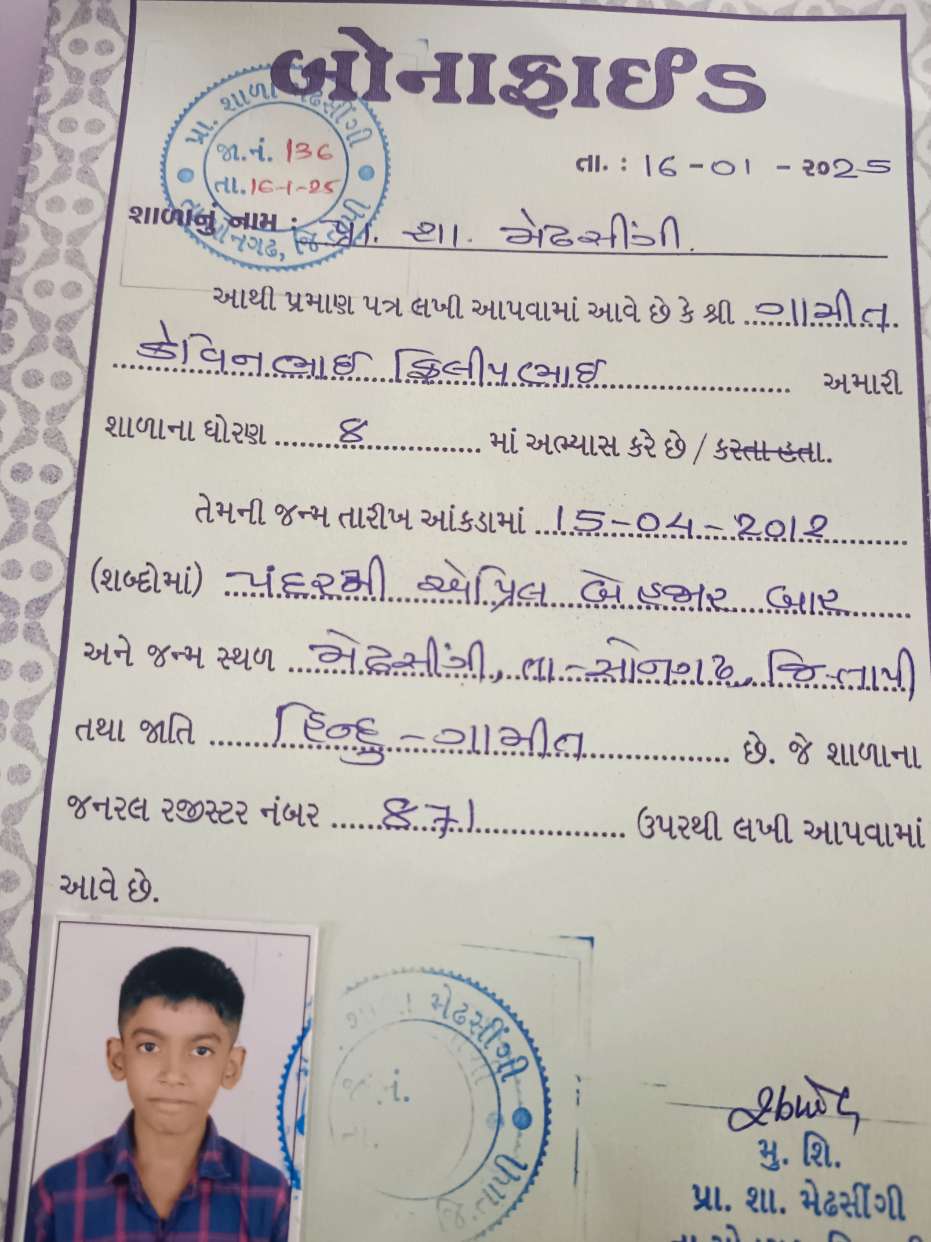 બોનાફાઈડ
પ્રા. શાળા મેઢસીંગી
જા.નં. 136
તા. 16-1-25
તા. : 16-01-૨૦25
શાળાનું નામ : પ્રા. શા. મેઢસીંગી.
આથી પ્રમાણ પત્ર લખી આપવામાં આવે છે કે શ્રી ગામીત
કેવિનભાઈ ફિલીપભાઈ અમારી
શાળાના ધોરણ 8 માં અભ્યાસ કરે છે / કરતા હતા.
તેમની જન્મ તારીખ આંકડામાં 15-04-2012
(શબ્દોમાં) પંદરમી એપ્રિલ બે હજાર બાર
અને જન્મ સ્થળ મેઢસીંગી, તા-સોનગઢ, જિ-તાપી
તથા જાતિ હિન્દુ-ગામીત છે. જે શાળાના
જનરલ રજીસ્ટર નંબર 871 ઉપરથી લખી આપવામાં
આવે છે.
મેઢસીંગી
મુ. શિ.
પ્રા. શા. મેઢસીંગી